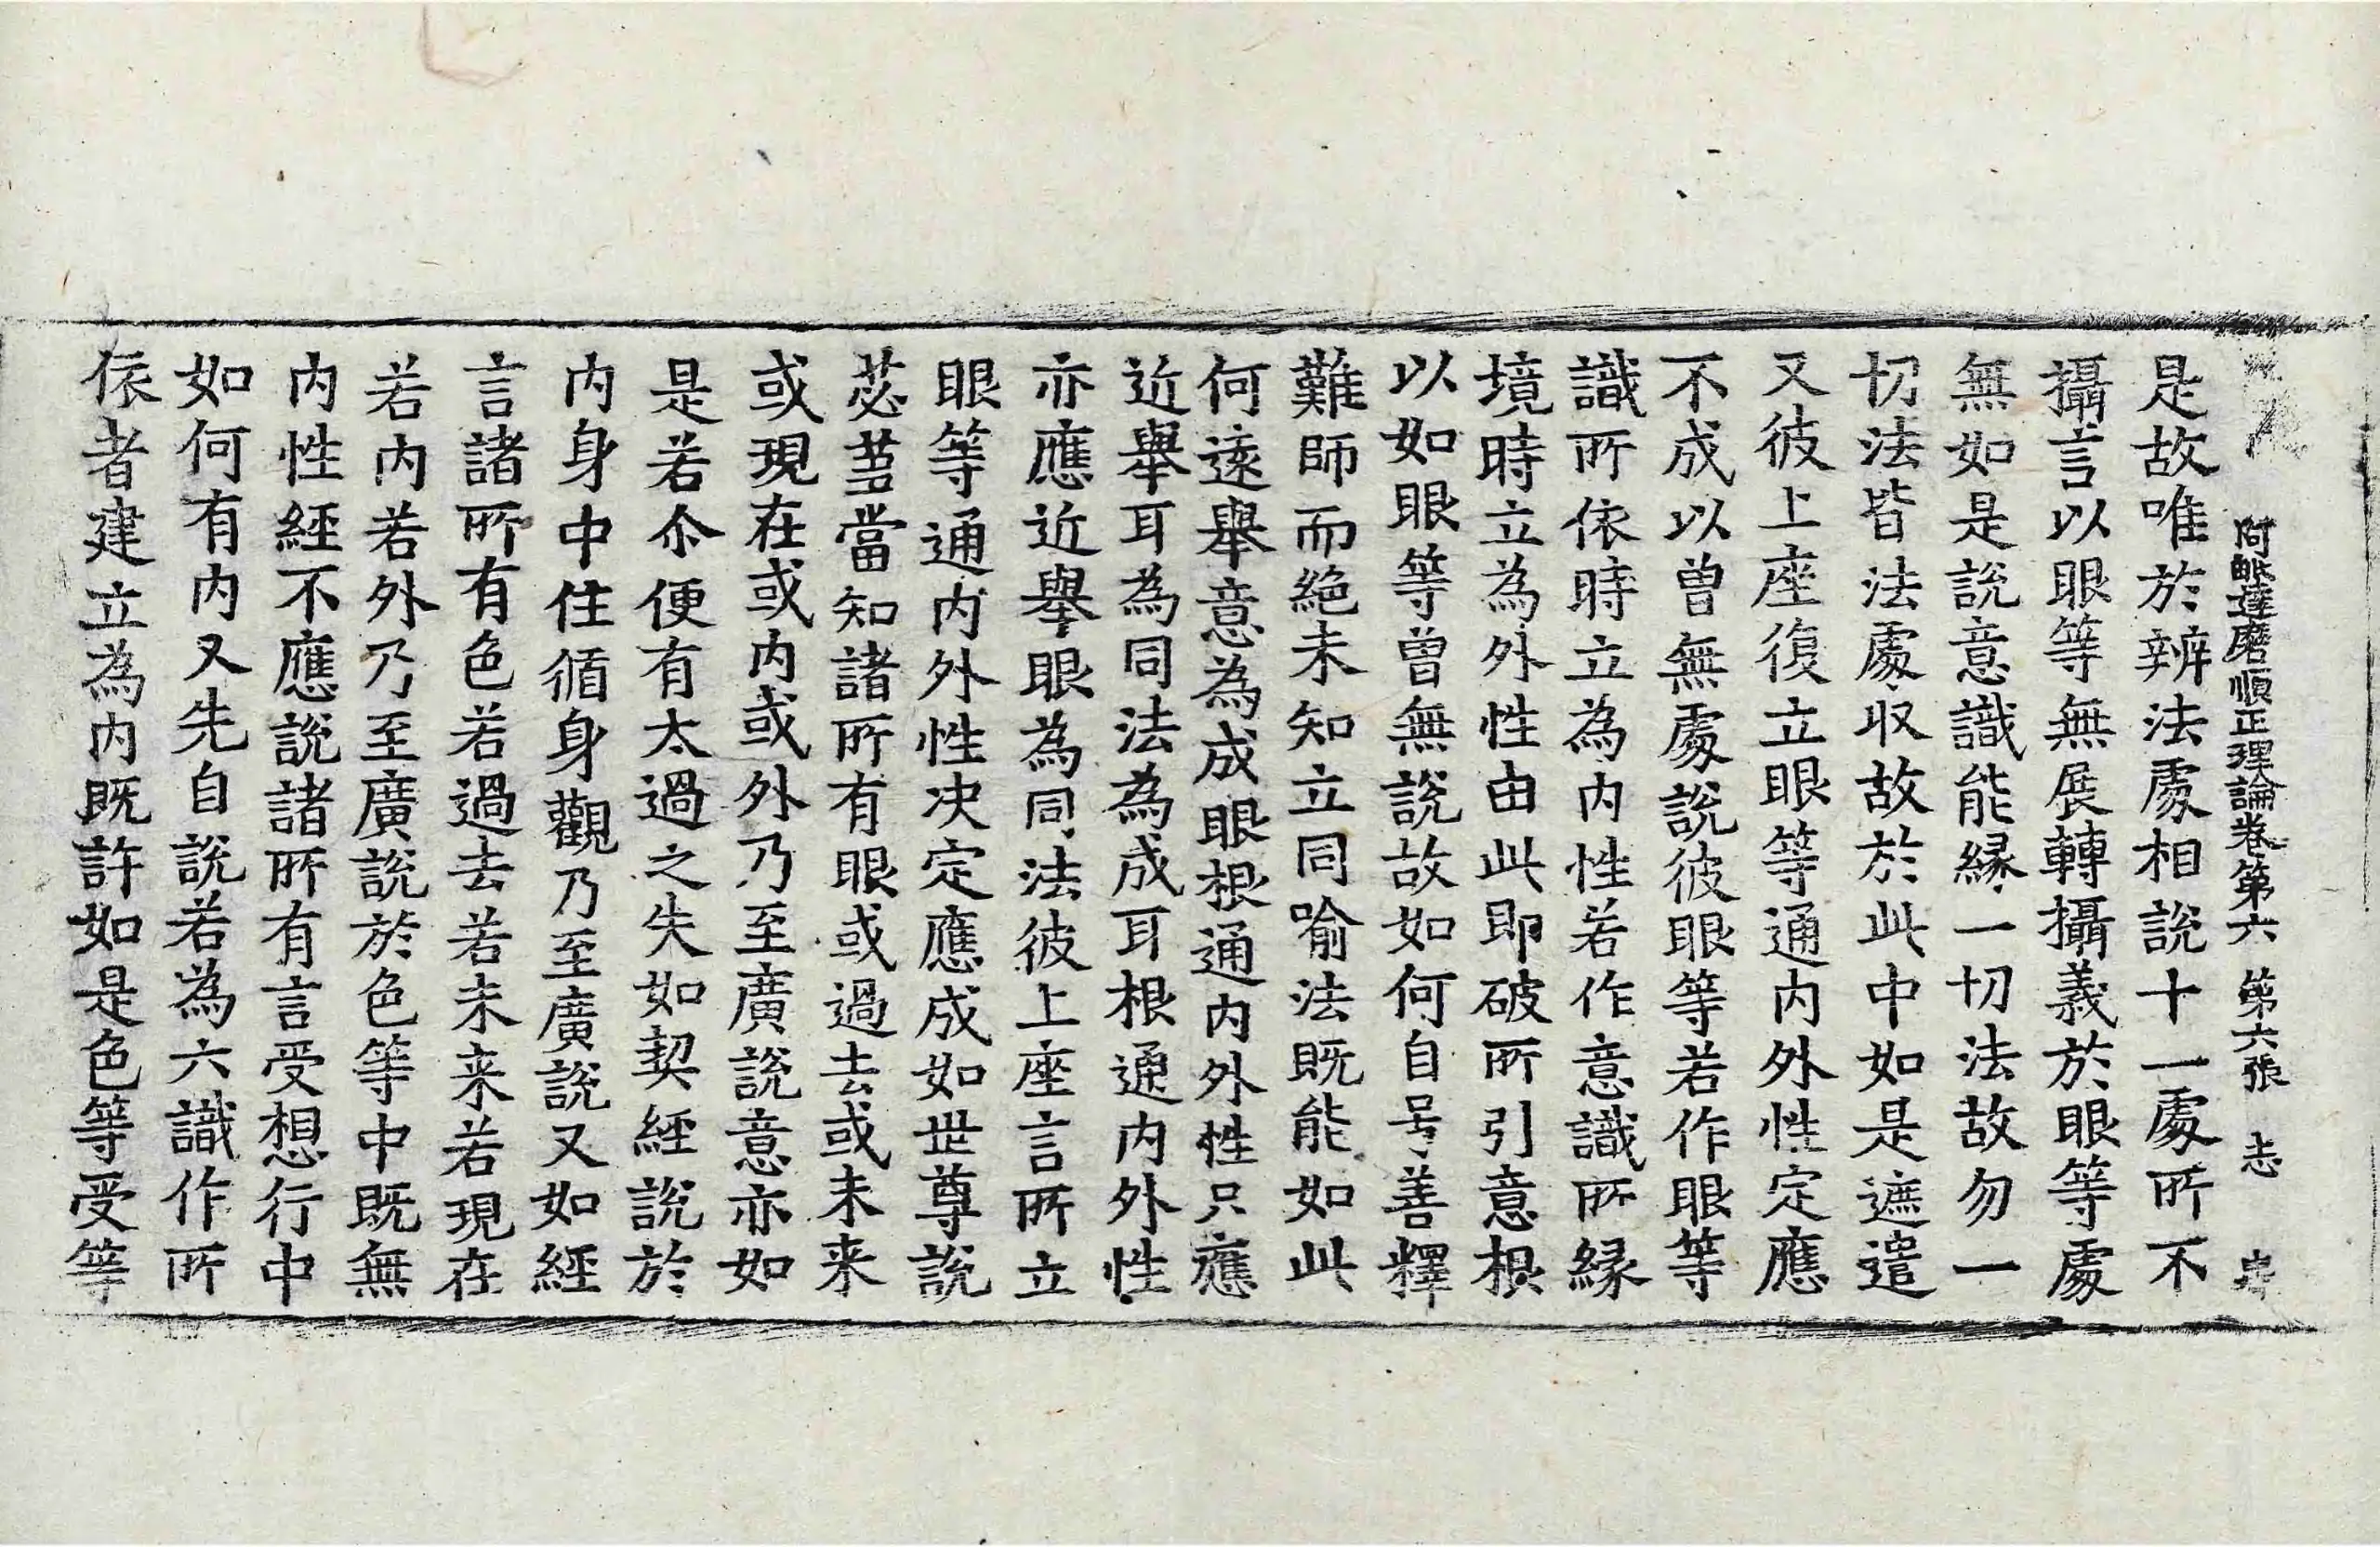 阿毗達磨順正理論卷第六 第六張 志
是故唯於辨法處相說十一處所不
攝言以眼等無展轉攝義於眼等處
無如是說意識能緣一切法故勿一
切法皆法處收故於此中如是遮遣
又彼上座復立眼等通內外性定應
不成以曾無處說彼眼等若作眼等
識所依時立為內性若作意識所緣
境時立為外性由此即破所引意根
以如眼等曾無說故如何自号善釋
難師而絕未知立同喻法既能如此
何遠舉意為成眼根通內外性只應
近舉耳為同法為成耳根通內外性
亦應近舉眼為同法彼上座言所立
眼等通內外性决定應成如世尊說
苾蒭當知諸所有眼或過去或未来
或現在或內或外乃至廣說意亦如
是若尒便有太過之失如契經說於
內身中住循身觀乃至廣說又如經
言諸所有色若過去若未来若現在
若內若外乃至廣說於色等中既無
內性經不應說諸所有言受想行中
如何有內又先自說若為六識作所
依者建立為內既許如是色等受等